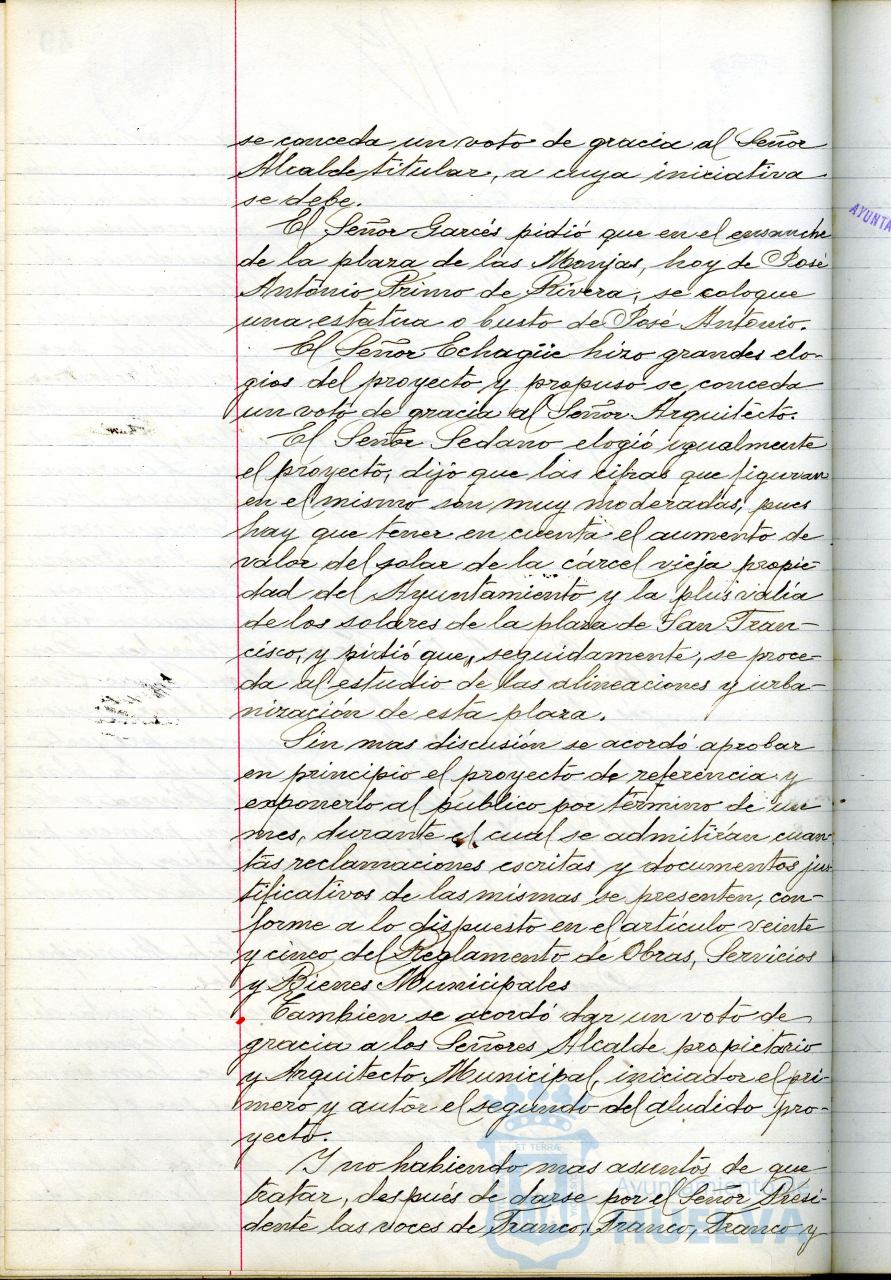 se conceda un voto de gracia al Señor
Alcalde titular, a cuya iniciativa
se debe.
El Señor Garcés pidió que en el ensanche
de la plaza de las Monjas, hoy de José
Antonio Primo de Rivera, se coloque
una estatua o busto de José Antonio.
El Señor Echagüe hizo grandes elo-
gios del proyecto y propuso se conceda
un voto de gracia al Señor Arquitecto.
El Señor Sedano elogió igualmente
el proyecto, dijo que las cifras que figuran
en el mismo son muy moderadas, pues
hay que tener en cuenta el aumento de
valor del solar de la cárcel vieja propie-
dad del Ayuntamiento y la plusvalía
de los solares de la plaza de San Fran-
cisco, y pidió que, seguidamente, se proce-
da al estudio de las alineaciones y urba-
nización de esta plaza.
Sin mas discusión se acordó aprobar
en principio el proyecto de referencia y
exponerlo al público por término de un
mes, durante el cual se admitirán cuan-
tas reclamaciones escritas y documentos jus-
tificativos de las mismas se presenten, con-
forme a lo dispuesto en el artículo veinte
y cinco del Reglamento de Obras, Servicios
y Bienes Municipales
Tambien se acordó dar un voto de
gracia a los Señores Alcalde propietario
y Arquitecto Municipal, iniciador el pri-
mero y autor el segundo del aludido pro-
yecto.
Y no habiendo mas asuntos de que
tratar, después de darse por el Señor Presi-
dente las voces de Franco, Franco, Franco y
AYUNTA
ET TERRÆ
Ayuntamiento de
HUELVA